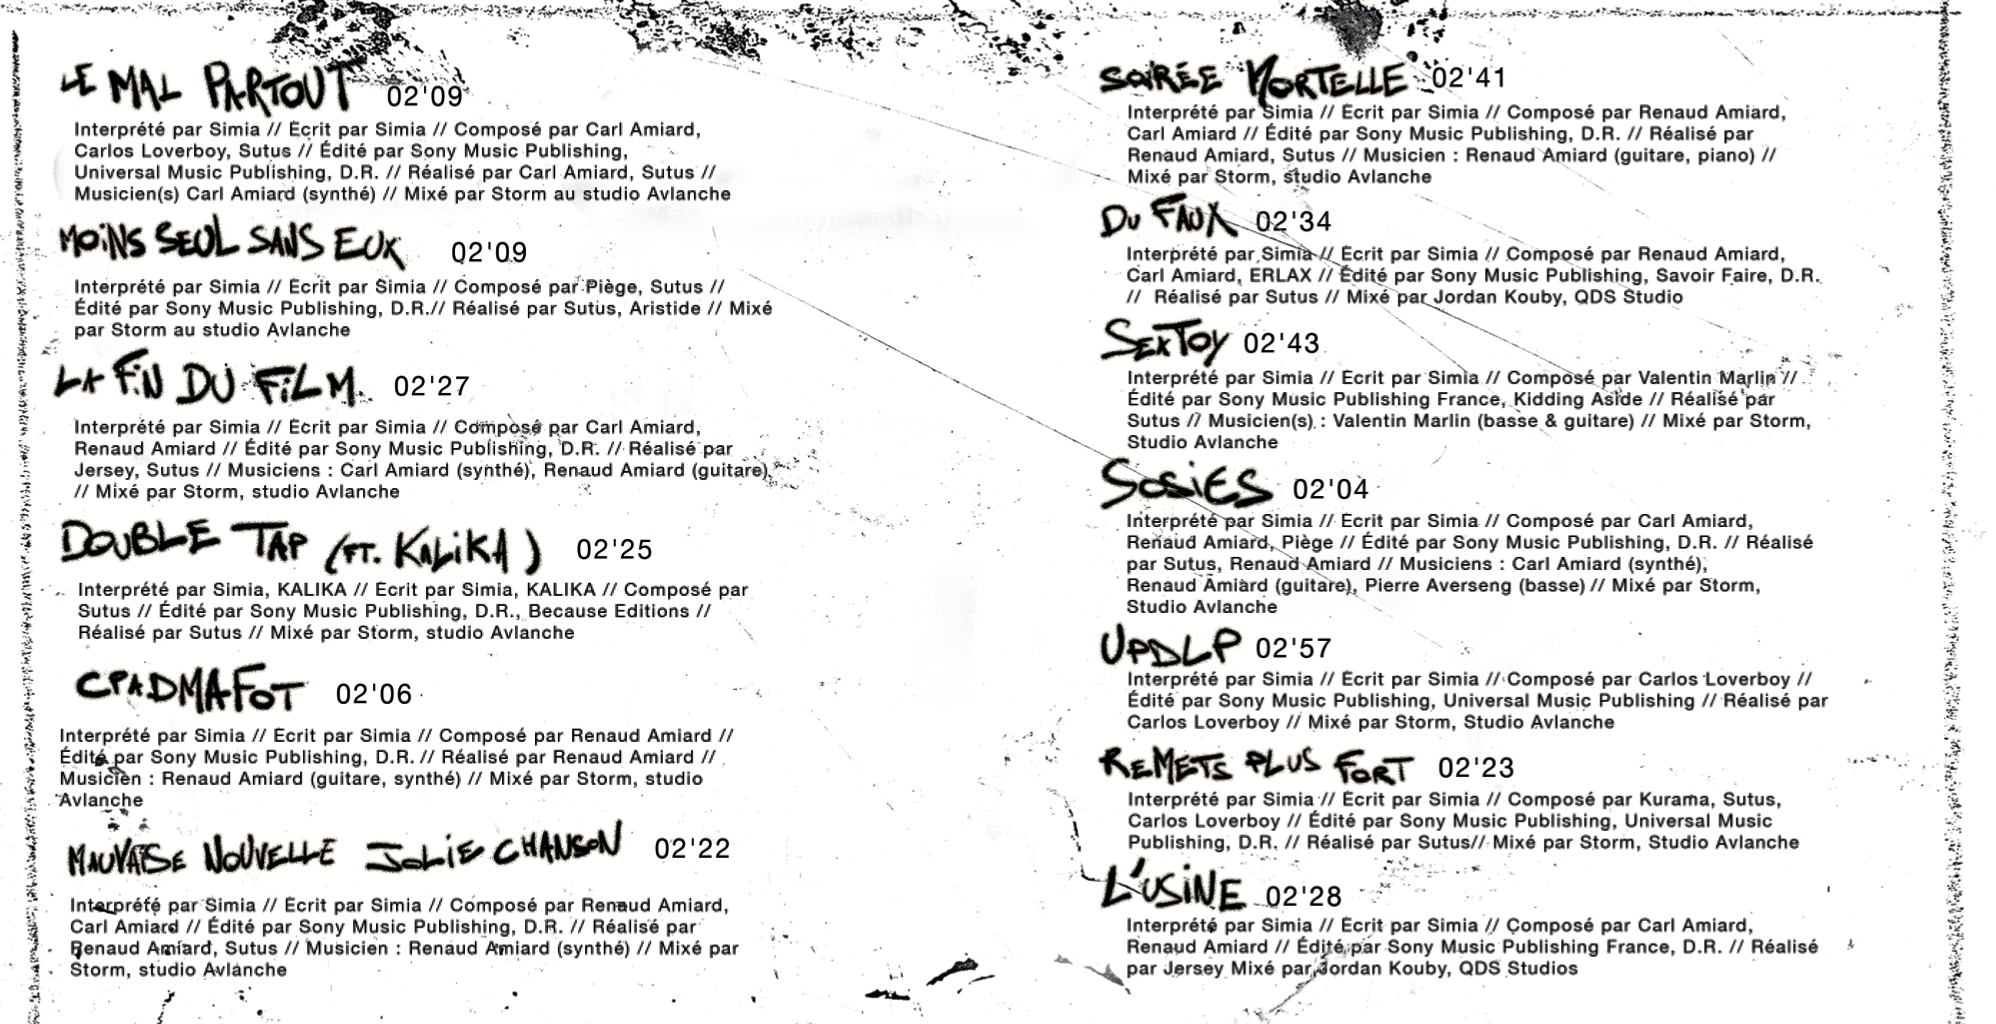 LE MAL PARTOUT 02'09
Interprété par Simia // Écrit par Simia // Composé par Carl Amiard,
Carlos Loverboy, Sutus // Édité par Sony Music Publishing,
Universal Music Publishing, D.R. // Réalisé par Carl Amiard, Sutus //
Musicien(s) Carl Amiard (synthé) // Mixé par Storm au studio Avlanche
MOiNS SEUL SANS EUX 02'09
Interprété par Simia // Écrit par Simia // Composé par Piège, Sutus //
Édité par Sony Music Publishing, D.R.// Réalisé par Sutus, Aristide // Mixé
par Storm au studio Avlanche
LA FiN DU FiLM 02'27
Interprété par Simia // Écrit par Simia // Composé par Carl Amiard,
Renaud Amiard // Édité par Sony Music Publishing, D.R. // Réalisé par
Jersey, Sutus // Musiciens : Carl Amiard (synthé), Renaud Amiard (guitare)
// Mixé par Storm, studio Avlanche
DOUBLE TAP (FT. KALiKA) 02'25
Interprété par Simia, KALIKA // Écrit par Simia, KALIKA // Composé par
Sutus // Édité par Sony Music Publishing, D.R., Because Editions //
Réalisé par Sutus // Mixé par Storm, studio Avlanche
CPADMAFOT 02'06
Interprété par Simia // Écrit par Simia // Composé par Renaud Amiard //
Édité par Sony Music Publishing, D.R. // Réalisé par Renaud Amiard //
Musicien : Renaud Amiard (guitare, synthé) // Mixé par Storm, studio
Avlanche
MAUVAiSE NOUVELLE JOLiE CHANSON 02'22
Interprété par Simia // Écrit par Simia // Composé par Renaud Amiard,
Carl Amiard // Édité par Sony Music Publishing, D.R. // Réalisé par
Renaud Amiard, Sutus // Musicien : Renaud Amiard (synthé) // Mixé par
Storm, studio Avlanche
SOiRÉE MORTELLE 02'41
Interprété par Simia // Écrit par Simia // Composé par Renaud Amiard,
Carl Amiard // Édité par Sony Music Publishing, D.R. // Réalisé par
Renaud Amiard, Sutus // Musicien : Renaud Amiard (guitare, piano) //
Mixé par Storm, studio Avlanche
DU FAUX 02'34
Interprété par Simia // Écrit par Simia // Composé par Renaud Amiard,
Carl Amiard, ERLAX // Édité par Sony Music Publishing, Savoir Faire, D.R.
// Réalisé par Sutus // Mixé par Jordan Kouby, QDS Studio
SEXTOY 02'43
Interprété par Simia // Écrit par Simia // Composé par Valentin Marlin //
Édité par Sony Music Publishing France, Kidding Aside // Réalisé par
Sutus // Musicien(s) : Valentin Marlin (basse & guitare) // Mixé par Storm,
Studio Avlanche
SOSiES 02'04
Interprété par Simia // Écrit par Simia // Composé par Carl Amiard,
Renaud Amiard, Piège // Édité par Sony Music Publishing, D.R. // Réalisé
par Sutus, Renaud Amiard // Musiciens : Carl Amiard (synthé),
Renaud Amiard (guitare), Pierre Averseng (basse) // Mixé par Storm,
Studio Avlanche
UPDLP 02'57
Interprété par Simia // Écrit par Simia // Composé par Carlos Loverboy //
Édité par Sony Music Publishing, Universal Music Publishing // Réalisé par
Carlos Loverboy // Mixé par Storm, Studio Avlanche
REMETS PLUS FORT 02'23
Interprété par Simia // Écrit par Simia // Composé par Kurama, Sutus,
Carlos Loverboy // Édité par Sony Music Publishing, Universal Music
Publishing, D.R. // Réalisé par Sutus// Mixé par Storm, Studio Avlanche
L'USiNE 02'28
Interprété par Simia // Écrit par Simia // Composé par Carl Amiard,
Renaud Amiard // Édité par Sony Music Publishing France, D.R. // Réalisé
par Jersey Mixé par Jordan Kouby, QDS Studios